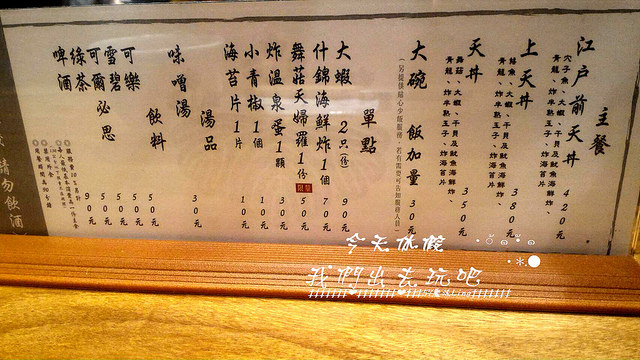 主餐
江戶前天丼 420元
穴子魚、大蝦、干貝及魷魚海鮮炸、
青龍、炸半熟玉子、炸海苔片
上天丼 380元
鱚魚、大蝦、干貝及魷魚海鮮炸、
青龍、炸半熟玉子、炸海苔片
天丼 350元
舞菇、大蝦、干貝及魷魚海鮮炸、
青龍、炸半熟玉子、炸海苔片
大碗 飯加量 30元
單點
大蝦 2只(份) 90元
什錦海鮮炸1個 70元
舞菇天婦羅1份 限量 50元
炸溫泉蛋1顆 30元
小青椒1個 10元
海苔片1片 10元
湯品
味噌湯 30元
飲料
可樂 50元
雪碧 50元
可爾必思 50元
綠茶 50元
啤酒 90元
請勿飲酒
今天休假
我們出去玩吧